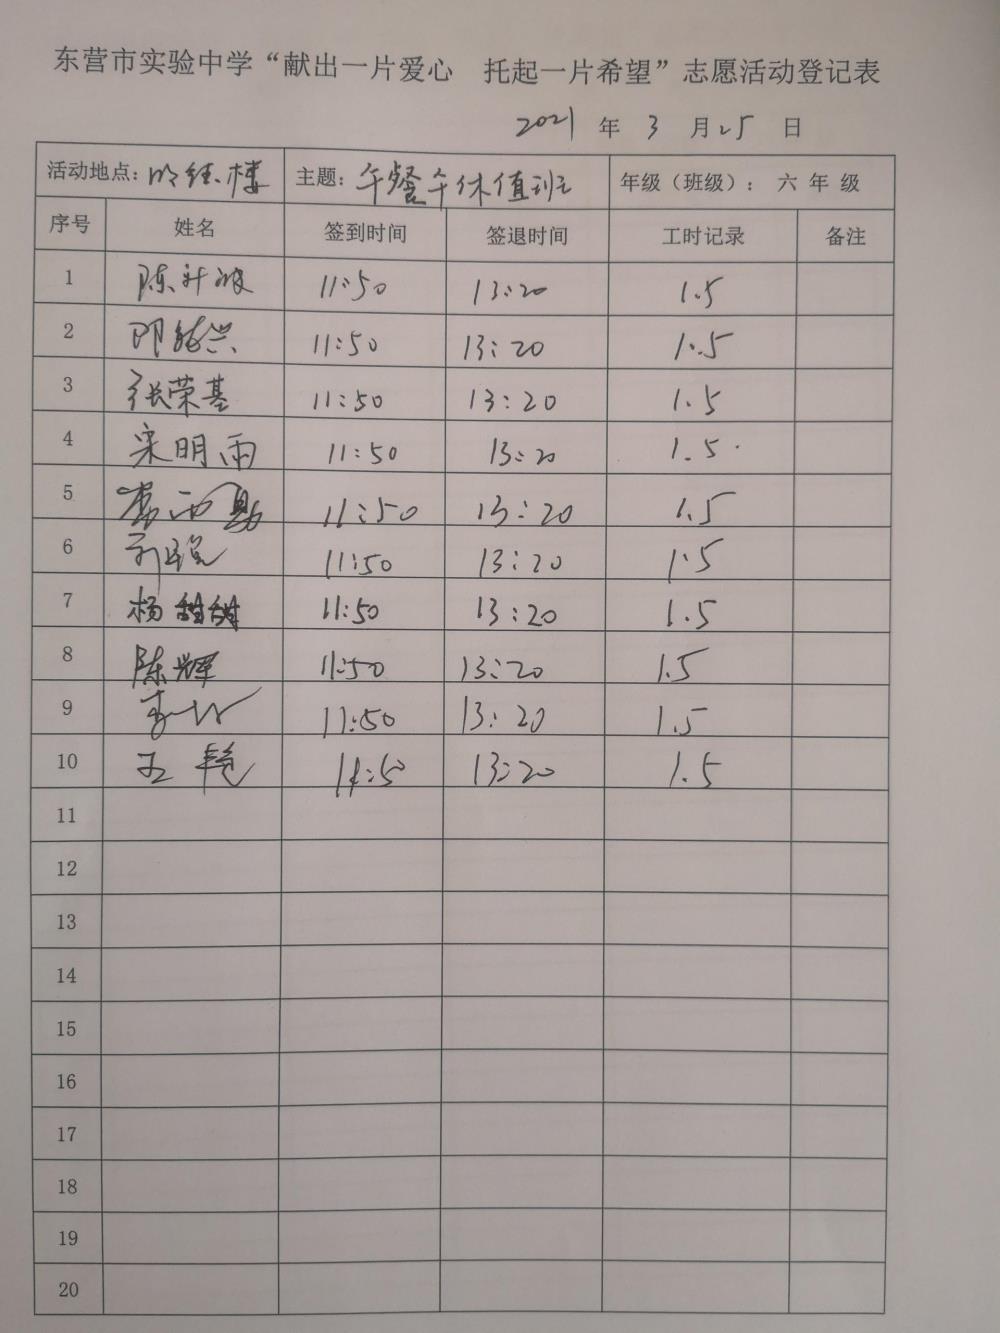 东营市实验中学“献出一片爱心　托起一片希望”志愿活动登记表
2021 年 3 月 25 日
活动地点：明经楼 主题：午餐午休值班 年级（班级）： 六 年 级
序号 姓名 签到时间 签退时间 工时记录 备注
1 陈 11:50 13:20 1.5
2 11:50 13:20 1.5
3 张荣基 11:50 13:20 1.5
4 宋明雨 11:50 13:20 1.5
5 11:50 13:20 1.5
6 11:50 13:20 1.5
7 杨甜甜 11:50 13:20 1.5
8 陈辉 11:50 13:20 1.5
9 11:50 13:20 1.5
10 王艳 11:50 13:20 1.5
11
12
13
14
15
16
17
18
19
20